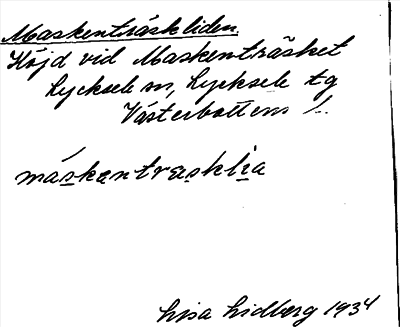 Maskenträskliden
Höjd vid Maskenträsket
Lycksele sn, Lycksele tg
Västerbottens l.
máskəntrasklia
Lisa Lidberg 1934